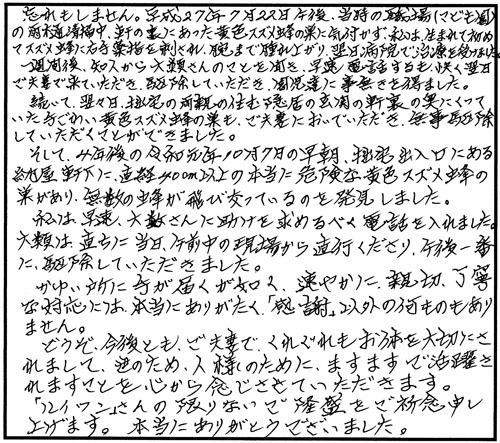 忘れもしません。平成27年7月22日午後、当時の職場(こども園)
の雨樋清掃中、軒の裏にあった黄色スズメ蜂の巣に気付かず、私は、生まれて初め
てスズメ蜂に右手薬指を刺され、腕まで腫れ上がり、翌日病院で治療を受けました。
一週間後、知人から大類さんのことを聞き、早速電話するも、快く翌日
ご夫妻で来ていただき、駆除していただき、園児達に事無きを得ました。
続いて、翌々日、拙宅の両親の住む隠居の玄関の軒裏の巣にくつて
いた手ごわい黄色スズメ蜂の巣も、ご夫妻においでいただき、無事駆除
していただくことができました。
そして、4年後の令和元年10月7日の早朝、拙宅出入口にある
納屋軒下に、直径40cm以上の本当に危険な黄色スズメ蜂の
巣があり、無数の蜂が飛び交っているのを発見しました。
私は、早速、大類さんに助けを求めるべく電話を入れました。
大類は、直ちに当日、午前中の現場から直行くださり、午後一番
に、駆除していただきました。
かゆい所に手が届くが如く、速やかに、親切、丁寧
な対応には、本当にありがたく、「感謝」以外の何ものもあり
ません。
どうぞ、今後とも、ご夫妻で、くれぐれもお体を大切にさ
れまして、世のため、人様のために、ますますご活躍さ
れますことを心から念じさせていただきます。
さんの限りないご隆盛をご祈念申し
上げます。本当にありがとうございました。